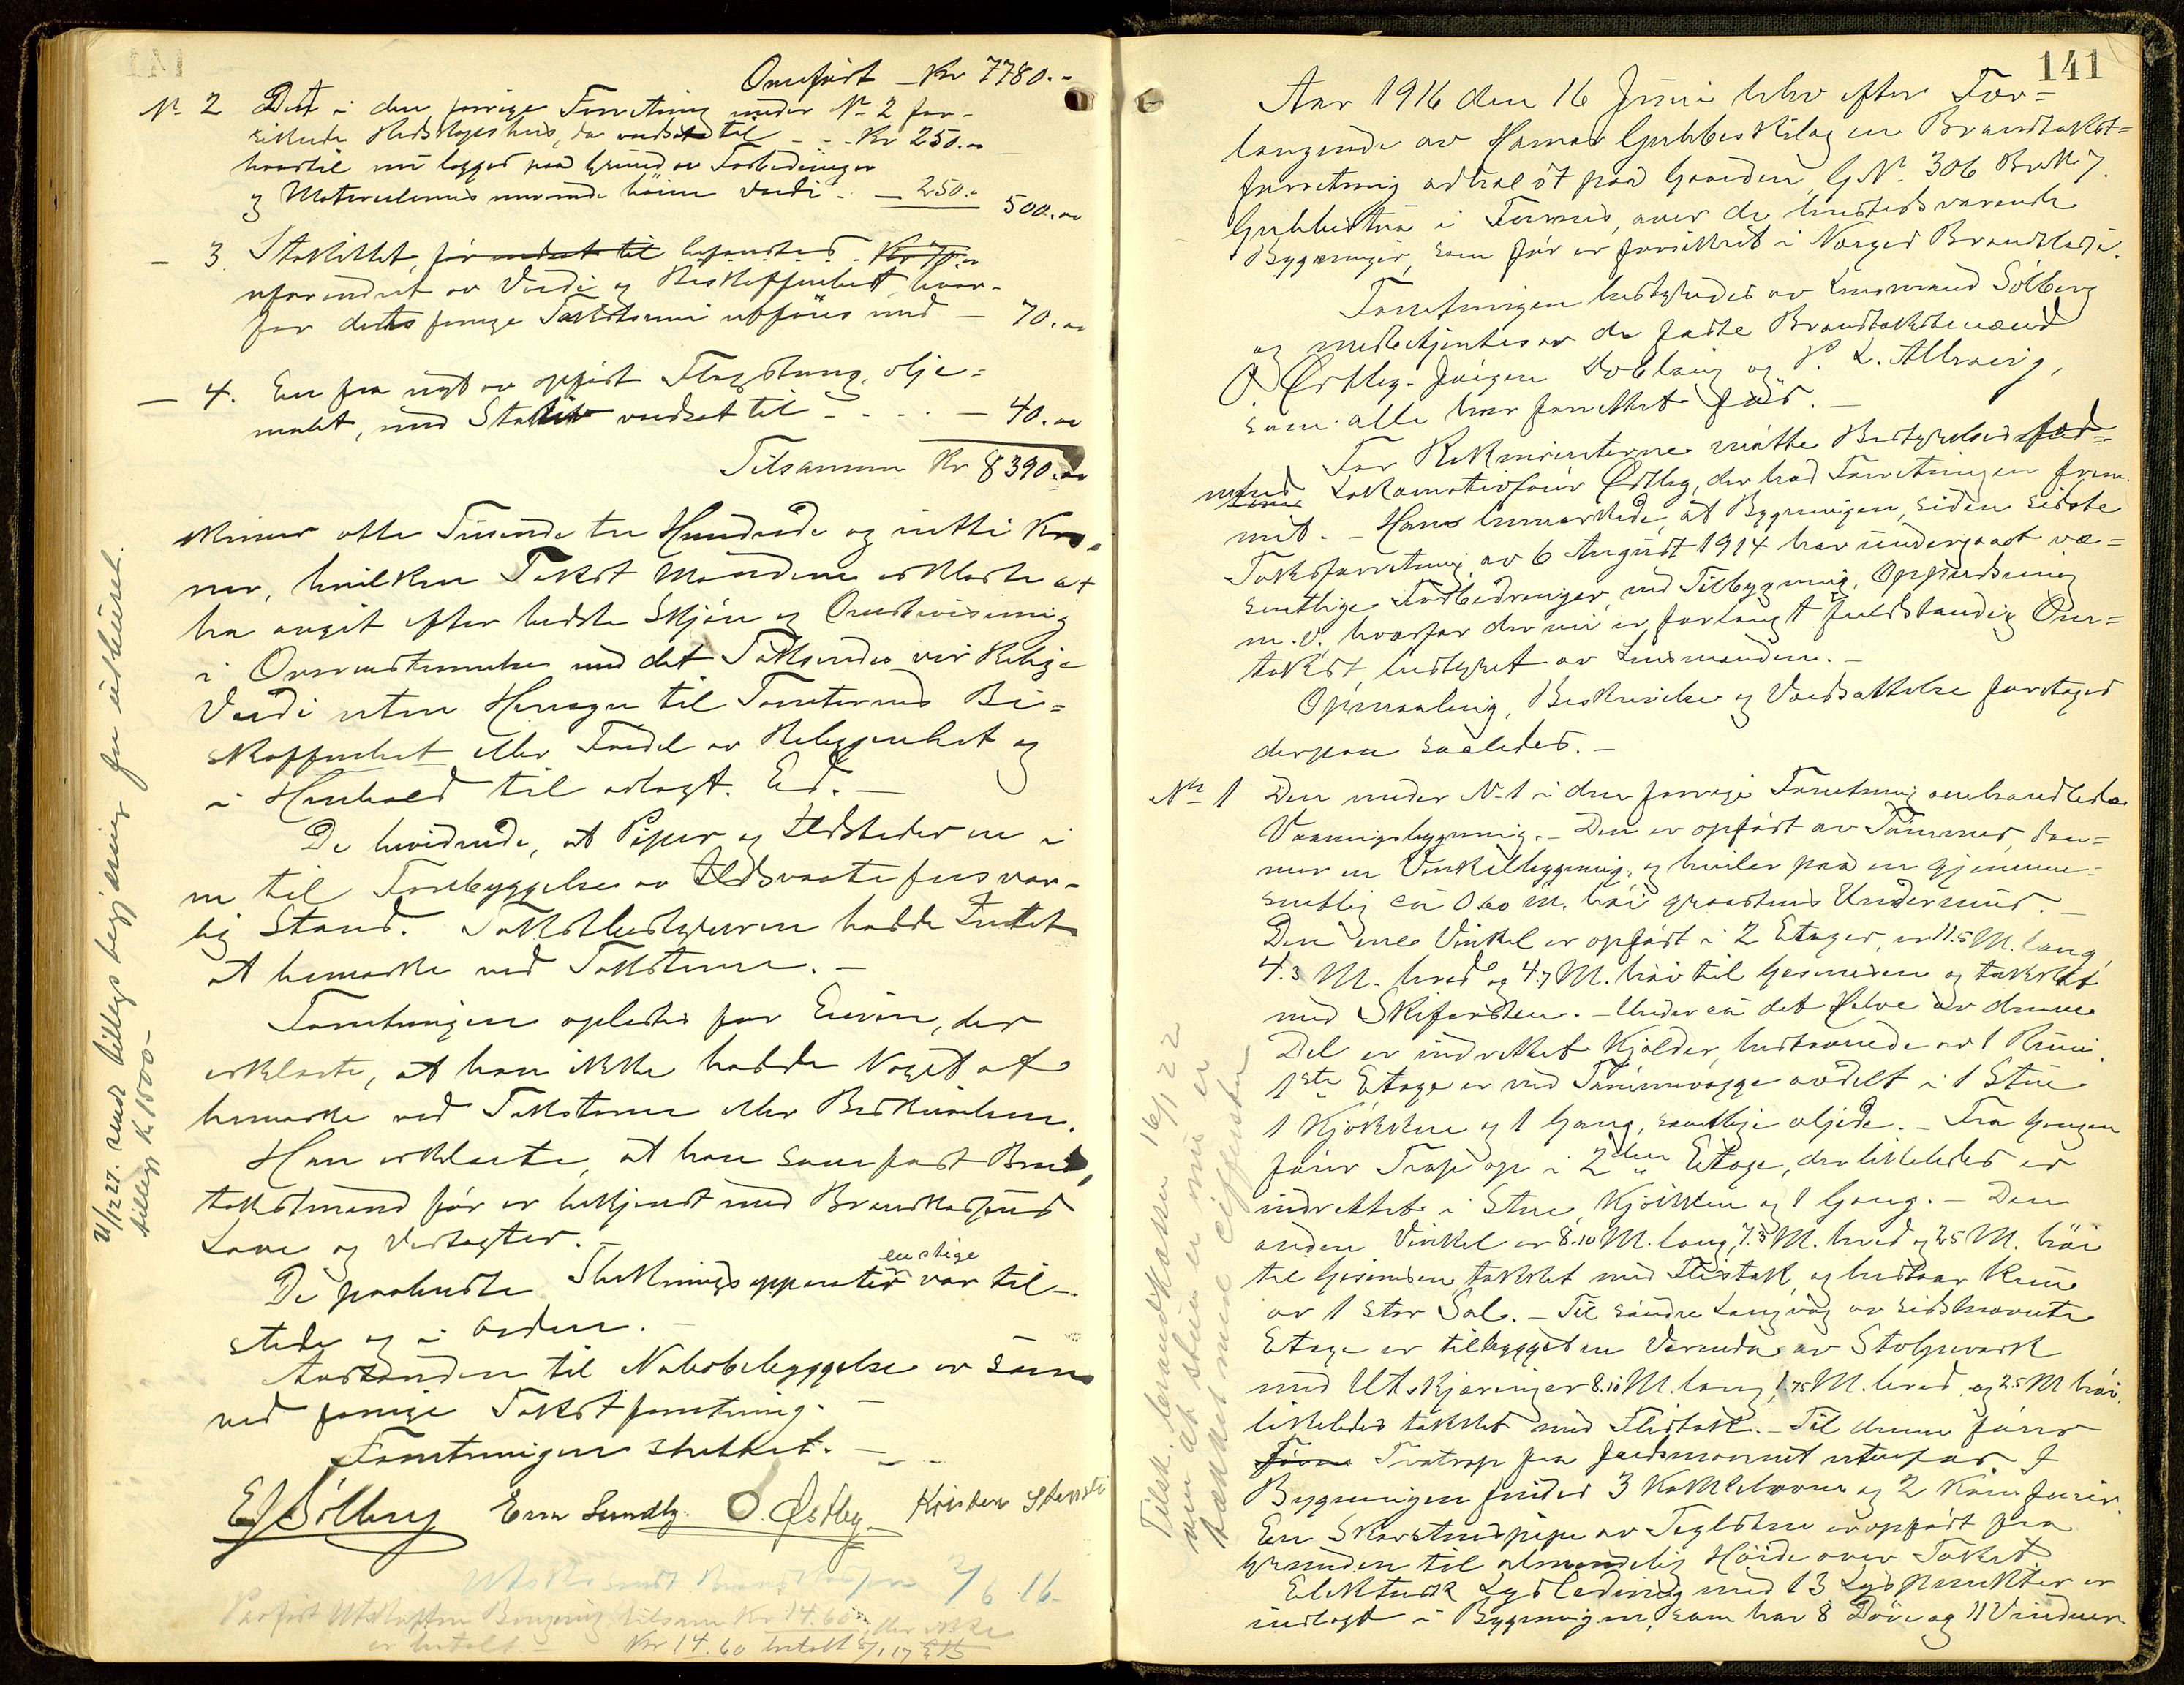 Overført - Kr 7780.-
No 2 Det i den forrige Forretning under No 2 for-
sikrede Redskapshus, da verdsat til - - Kr 250.00
hvortil nu lægges paa Grund av Forbedringer
og Materialernes nuværende høiere Værdi - - 250.- 500.00
- 3. Stakittet, før verdsat til befandtes Kr 70.00
uforandret av Værdi og Beskaffenhet, hvor-
for dets forrige Takstsum utføres med - 70.00
- 4. En fra nyt av opført Flagstang, olje-
malt, med Stakit værdsat til - - - - 40.00
Tilsammen Kr 8390.00
skriver otte Tusinde tre Hundrede og nitti Kro-
ner, hvilken Takst Mændene erklærte at
ha avgit efter bedste Skjøn og Overbevisning
i Overensstemmelse med det Takseredes virkelige
Værdi uten Hensyn til Tomternes Be-
skaffenhet eller Fordel av Beliggenhet og
i Henhold til avlagt Ed. -
De bevidnede, at Piper og Ildsteder er i
en til Forebyggelse av Ildsvaade forsvar-
lig Stand. Takstbestyreren hadde Intet
at bemærke ved Taksterne. -
Forretningen oplæstes for Eieren, der
erklærte, at han ikke hadde Noget at
bemærke ved Taksterne eller Beskrivelsen.
Han erklærte, at han som fast Brand-
takstmand før er bekjendt med Brandkassens
Love og Vedtægter. -
De paabudte Sluknings apparater enstige var til-
stede og i Orden. -
Avstanden til Nabobebyggelse er som
ved forrige Takstforretning. -
Forretningen sluttet. -
E. Sølberg Einar Sundby. O. Østby Kristen
Utskr. sendt Brandkassen 2/6 16.-
Kr 14.60 betalt
21/12 27. sendt tillægs begjæring for uthuset.
tillæg Kr. 1500-
141
Aar 1916 den 16 Juni blev efter For-
langende av Hamar Gubbeskilag en Brandtakst-
forretning avholdt paa Gaarden, G.No. 306 Br.No 7.
Gubbestua i Furnes, over de hersteds værende
Bygninger, som før er forsikret i Norges Brandkasse.
Forretningen bestyredes av Lensmand Sølberg
og medbetjentes av de faste Brandtakstmænd
O. Østby, Jørgen Doblaug og P. L. Alhaug,
som alle har forrettet før. -
For Rekvirenterne møtte Bestyrelsesmed-
lem Lokomotivfører Østby, der bad Forretningen frem-
met. - Han bemærkede, at Bygningen, siden sidste
Takstforretning av 6 August 1914 har undergaat væ-
sentlige Forbedringer ved Tilbygning, Oppudsning
m.v. hvorfor der nu er forlangt fuldstændig Om-
takst, bestyret av Lensmanden. -
Opmaaling, Beskrivelse og Værdsættelse foretages
derpaa saaledes. -
No 1 Den under No 1 i den forrige Forretning omhandlede
Vaaningsbygning. - Den er opført av Tømmer, dan-
ner en Vinkelbygning, og hviler paa en gjennem-
snitlig ca 0.60 M. høi graastens Undermur. -
Den ene Vinkel er opført i 2 Etager, er 11.5 M. lang,
4.3 M. bred og 4.7 M. høi til Gesimsen og tækket
med Skifersten. - Under ca det Halve av denne
Del er indrettet Kjelder, bestaaende av 1 Rum.
1ste Etage er ved Tømmervægge avdelt i 1 Stue
1 Kjøkken og 1 Gang, samtlige oljede. - Fra Gangen
fører Trap op i 2den Etage, der likeledes er
indrettet i Stue Kjøkken og 1 Gang. - Den
anden Vinkel er 8.10 M. lang, 7.3 M. bred og 2.5 M. høi
til Gesimsen, tækket med Flistak, og bestaar kun
av 1 stor Sal. - Til søndre Langvæg av sidstnævnte
Etage er tilbygget en Veranda av Stolpeverk
med Utskjæringer 8.10 M. lang, 1.75 M. bred og 2.5 M høi,
likeledes tækket med Flistak. - Til denne fører
Trætrap fra Jordsmonnet utenfor. I
Bygningen findes 3 Kakkelovne og 2 Komfurer.
En Skorstenspipe av Teglsten er opført fra
Grunden til almindelig Høide over Taket.
Elektrisk Lysledning med 13 Lyspunkter er
indlagt i Bygningen, som har 8 Døre og 11 Vinduer
Tilsk. brandkassen 16/12 22
om at stuen er nu er
tækket med eiffersten